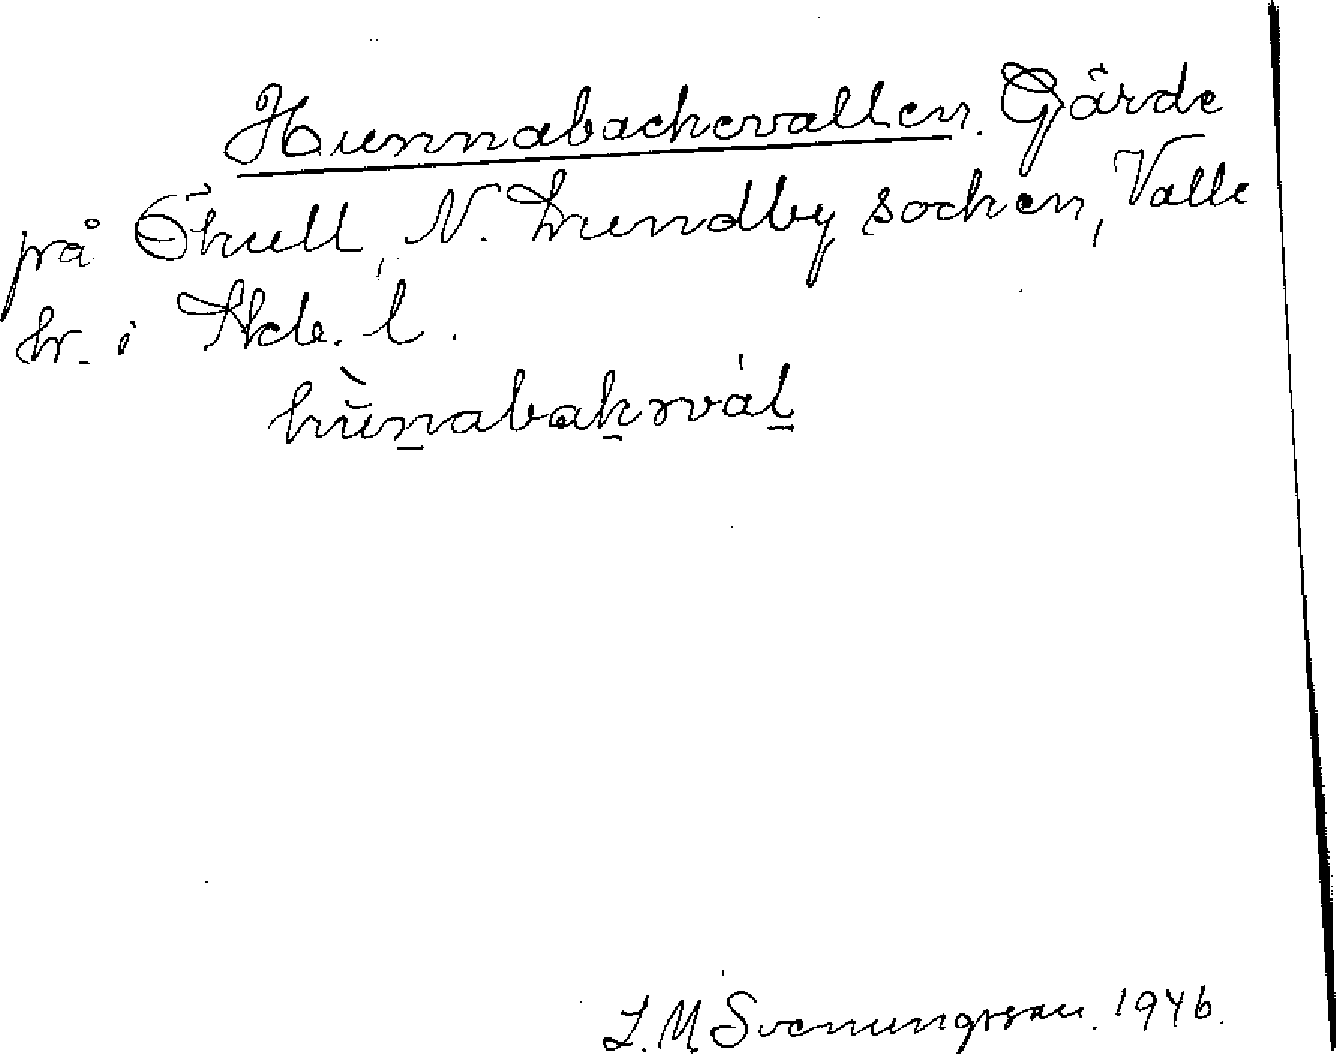 Hunnabackevallen. Gärde
på Ökull, N. Lundby socken, Valle
hr. i Skb. l.
hùn̠abak̠rvál̠
L. M. Svenungsson. 1946.